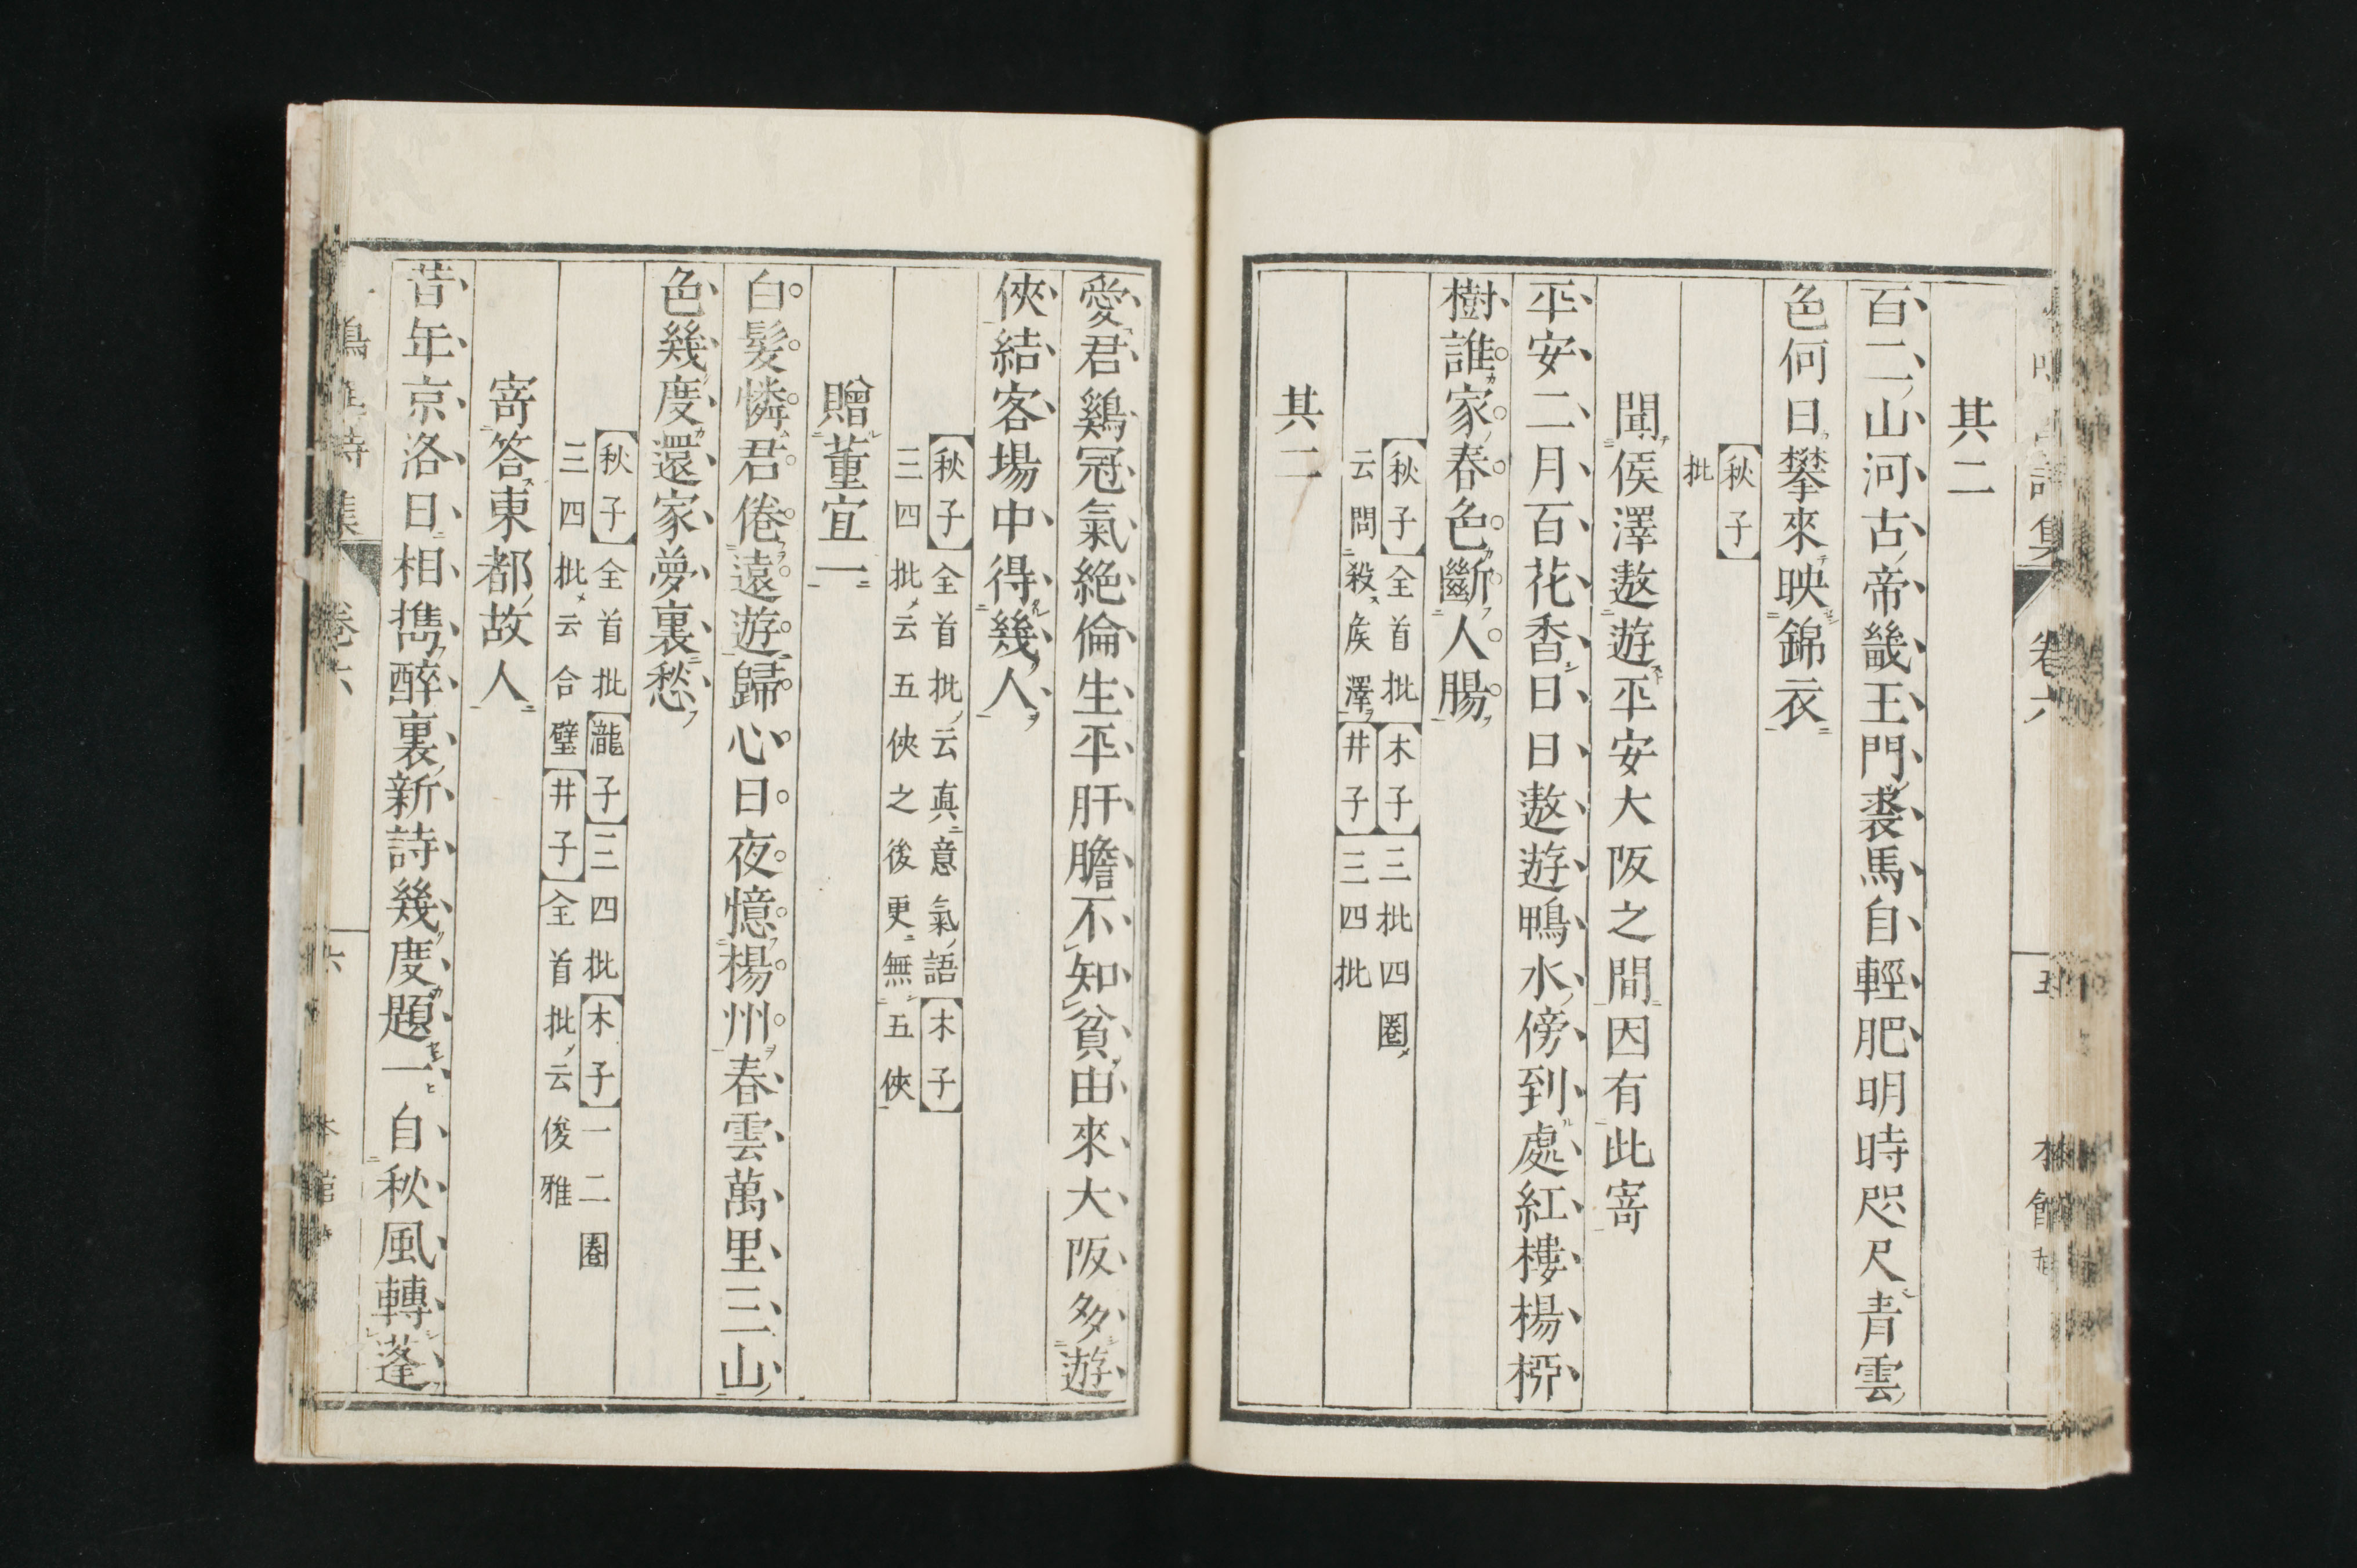 其二
百二山河古帝畿王門裘馬自輕肥明時咫尺青雲
色何日攀來映錦衣
【秋子】
批
聞侯澤遨遊平安大阪之間因有此寄
平安二月百花香日日遨遊鴨水傍到處紅樓楊柳
樹誰家春色斷人腸
【秋子】全首批【木子】三批四圈
云悶殺侯澤【井子】三四批
其二
愛君鷄冠氣絶倫生平肝膽不知貧由來大阪多遊
俠結客場中得幾人
【秋子】全首批云真意氣語【木子】
三四批云五俠之後更無五俠
贈董宜一
白髪憐君倦遠遊歸心日夜憶楊州春雲萬里三山
色幾度還家夢裏愁
【秋子】全首批【瀧子】三四批【木子】一二圈
三四批云合璧【井子】全首批云俊雅
寄答東都故人
昔年京洛日相擕醉裏新詩幾度題一自秋風轉蓬
詩集
卷六
六